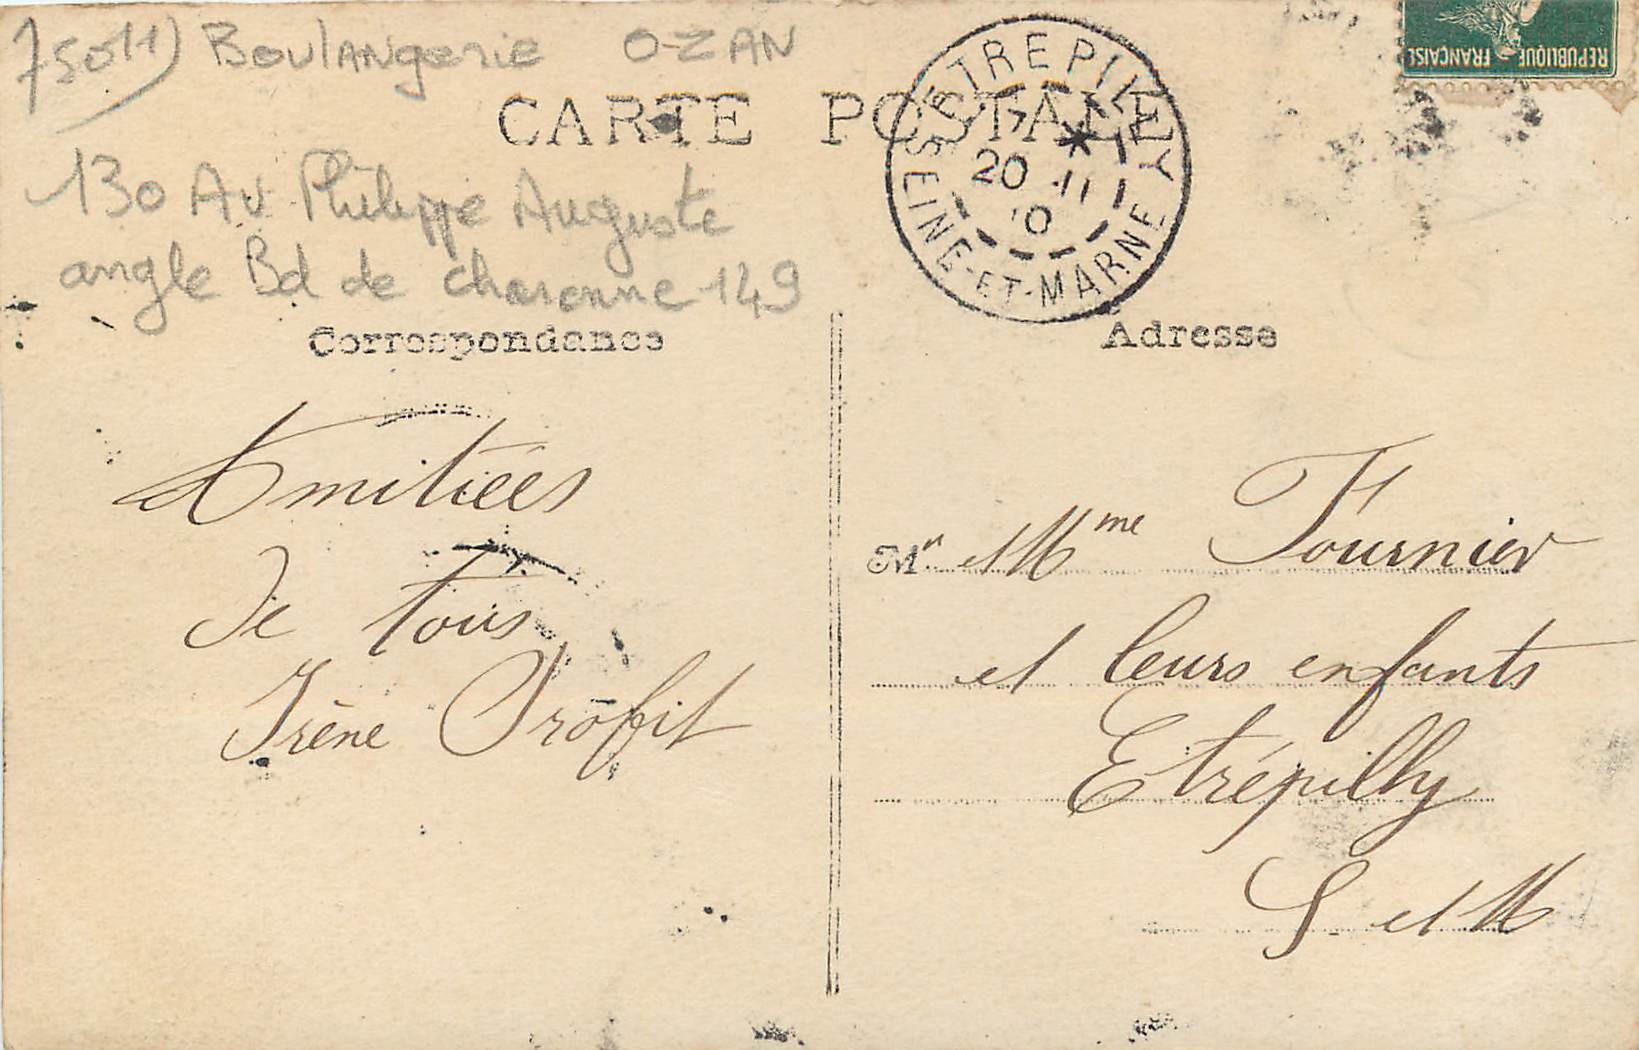 75011) Boulangerie OZAN
CARTE POSTALE
130 Av Philippe Auguste
angle Bd de charonne 149
ETREPILLY
7 *
20 11
10
SEINE-ET-MARNE
REPUBLIQUE FRANÇAISE
Correspondance
Adresse
Amitiées
de tous
Irène Profit
Mr et Mme Fournier
et leurs enfants
Etrépilly
S. et M